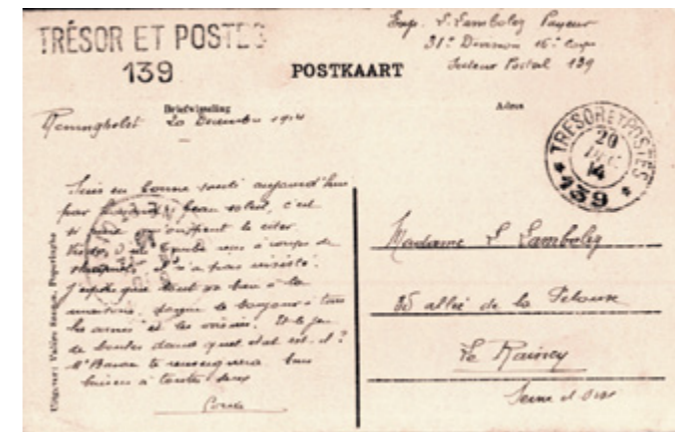 TRÉSOR ET POSTES
139
Exp. L. Lamboley Payeur
31e Division 16e Corps
Secteur Postal 139
POSTKAART
Briefwisseling
Adres
Reninghelst 20 Decembre 1914
TRESOR ET POSTES
20
DEC
14
* 139 *
Suis en bonne santé aujourd'hui
par beau soleil, c'est
si rare le citer
à coups de
n'a pas résisté.
J'espère que tout va bien à la
maison, le bonjour à tous
les amis et les voisins. Et le jeu
de boules dans quel état est-il ?
Mr te renseignera. bons
baisers à toutes deux
Uitgever: Valère Sansen, Poperinghe
Madame L. Lamboley
35 allée de la Pelouse
Le Raincy
Seine et Oise